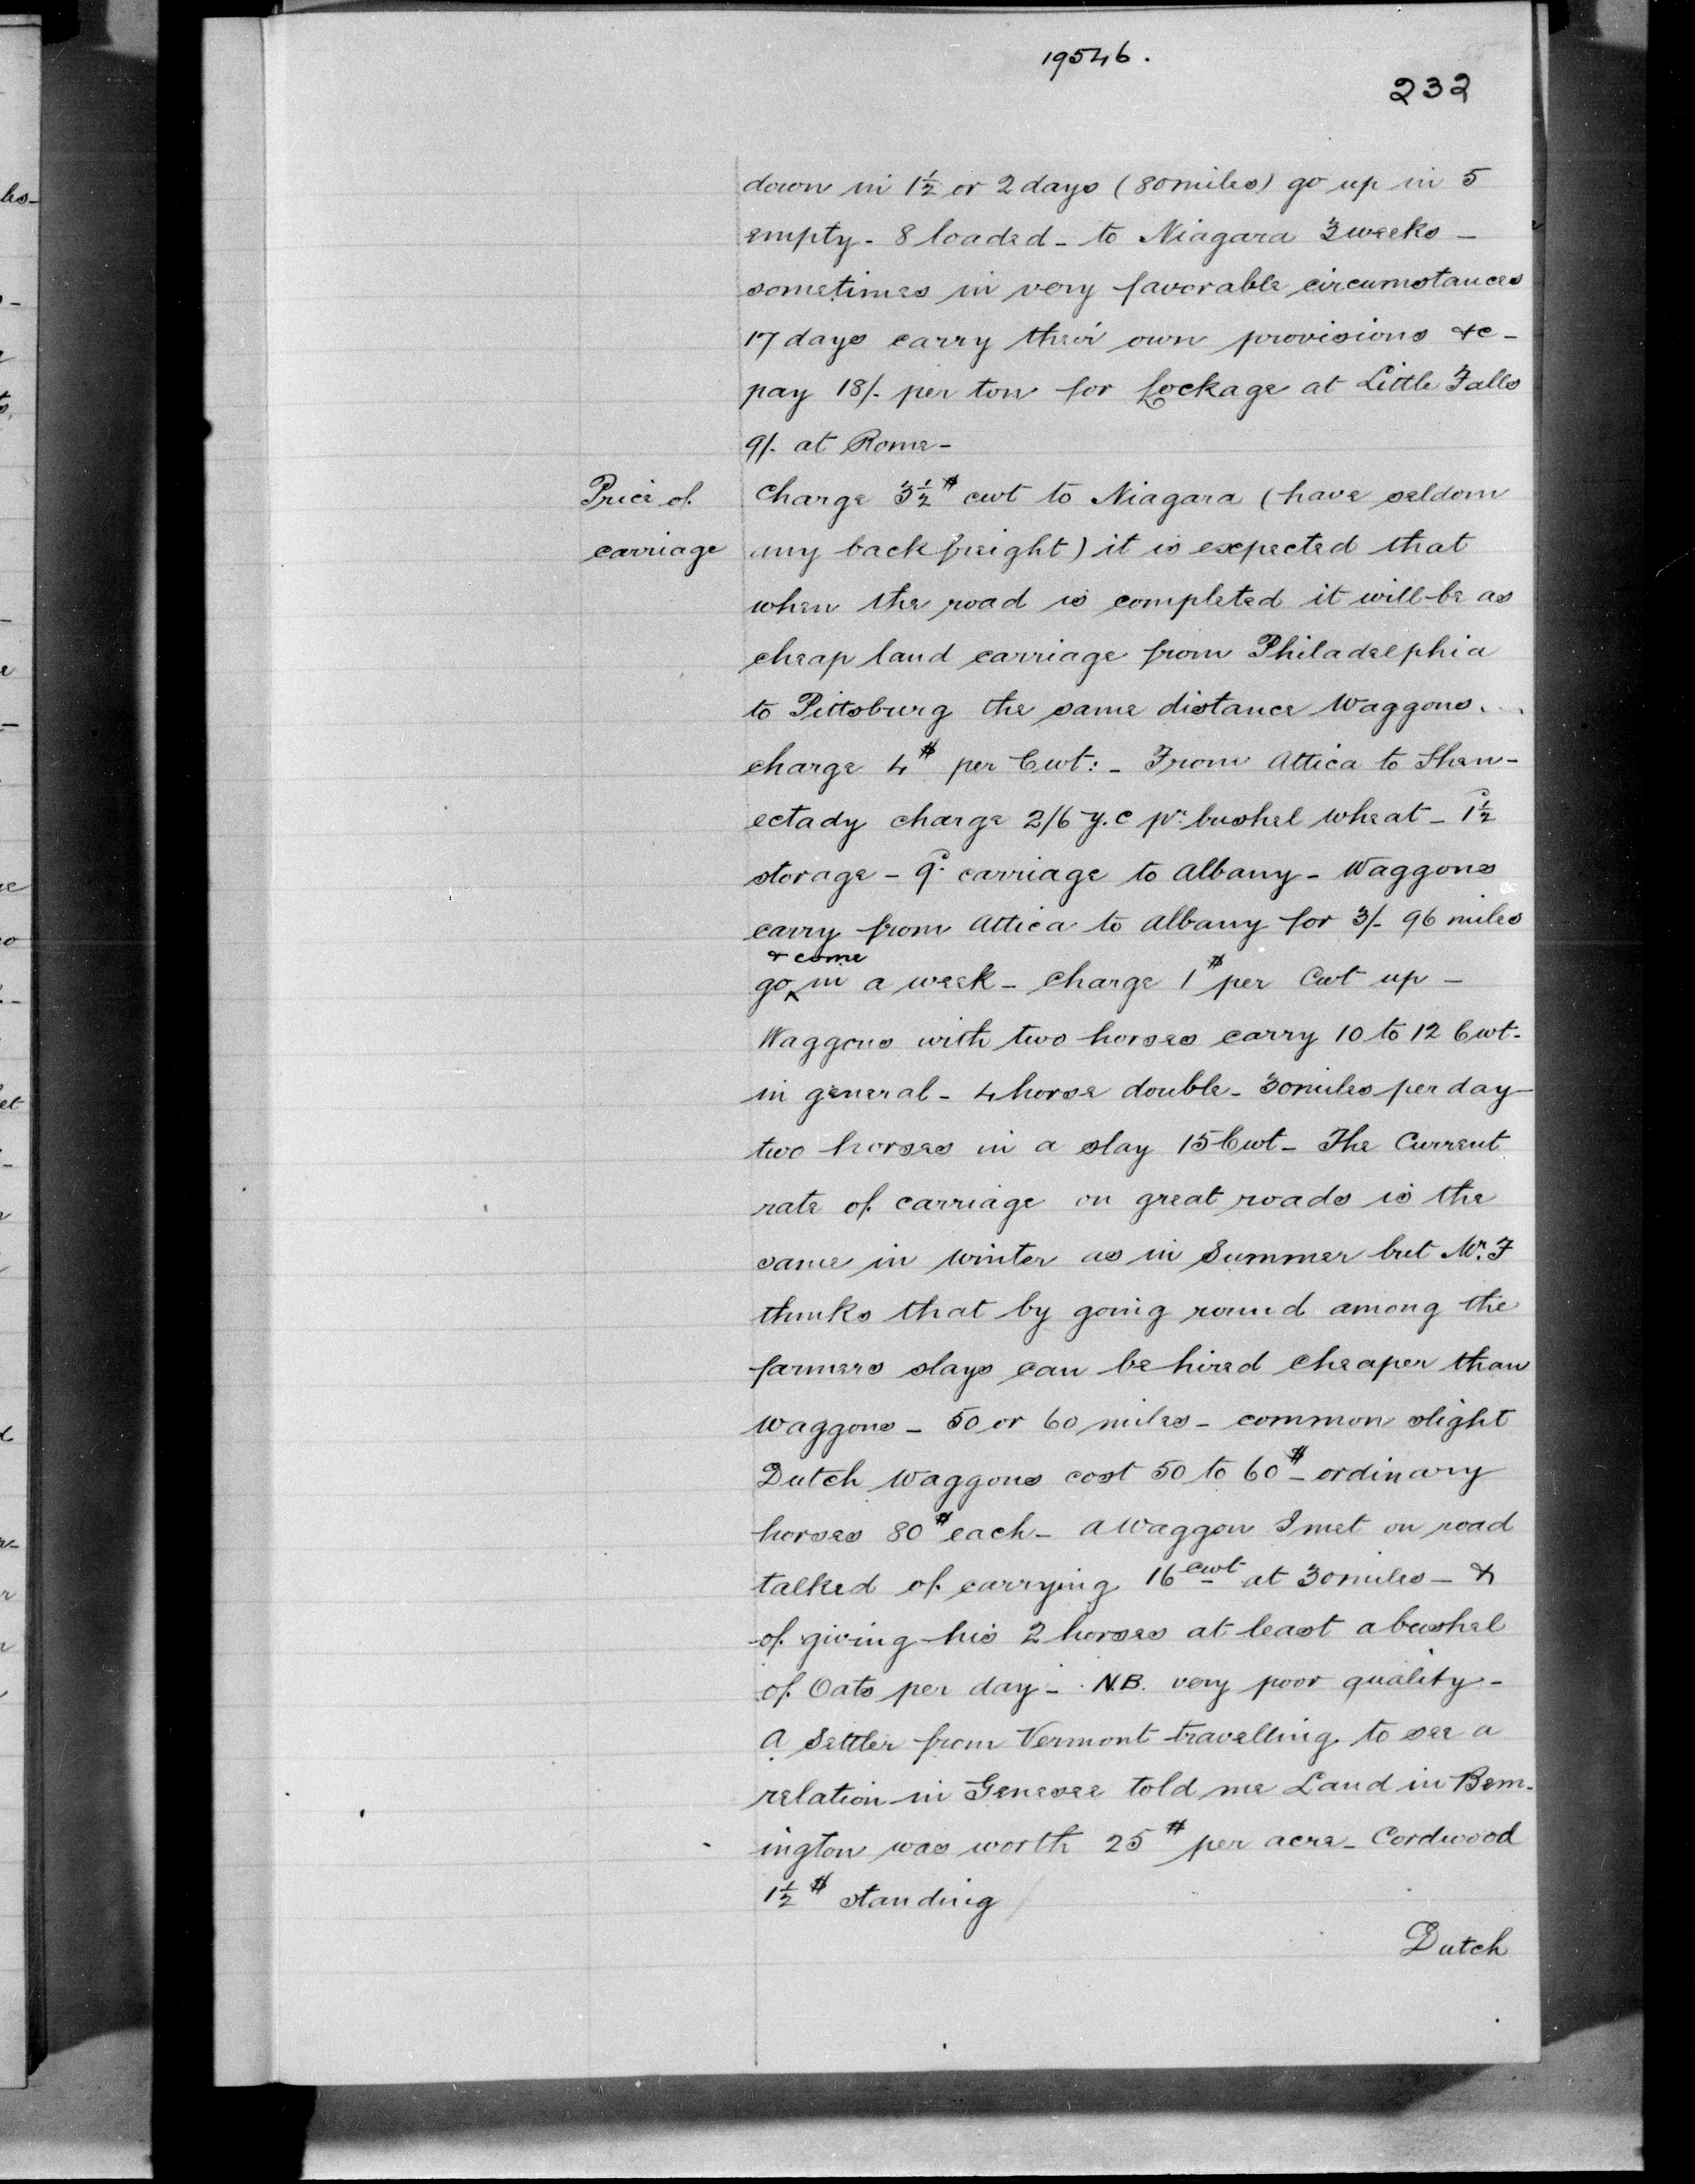 19546.
232
down in 1½ or 2 days (80 miles) go up in 5
empty - 8 loaded - to Niagara 3 weeks -
sometimes in very favorable circumstances
17 days carry their own provisions &c -
pay 18/- per ton for Lockage at Little Falls
9/- at Rome -
Price of carriage
charge 3½ $ cwt to Niagara (have seldom
any back freight) it is expected that
when the road is completed it will be as
cheap land carriage from Philadelphia
to Pittsburg the same distance Waggons...
charge 4 $ per Cwt: - From Attica to Shen-
ectady charge 2/6 Y.C pr bushel wheat - 1½ d
storage - 9d carriage to Albany - Waggons
carry from Attica to Albany for 3/- 96 miles
go & come in a week - charge 1 $ per Cwt up -
Waggons with two horses carry 10 to 12 Cwt -
in general - 4 horse double - 30 miles per day -
two horses in a slay 15 Cwt - The Current
rate of carriage on great roads is the
same in winter as in Summer but Mr. F
thinks that by going round among the
farmers slays can be hired cheaper than
waggons - 50 or 60 miles - common slight
Dutch Waggons cost 50 to 60 $ - ordinary
horses 80 $ each - A Waggon I met on road
talked of carrying 16 cwt at 30 miles - &
of giving his 2 horses at least a bushel
of Oats per day - N.B. very poor quality -
A Settler from Vermont travelling to see a
relation in Genesee told me Land in Benn-
ington was worth 25 $ per acre - Cordwood
1½ $ standing
Dutch